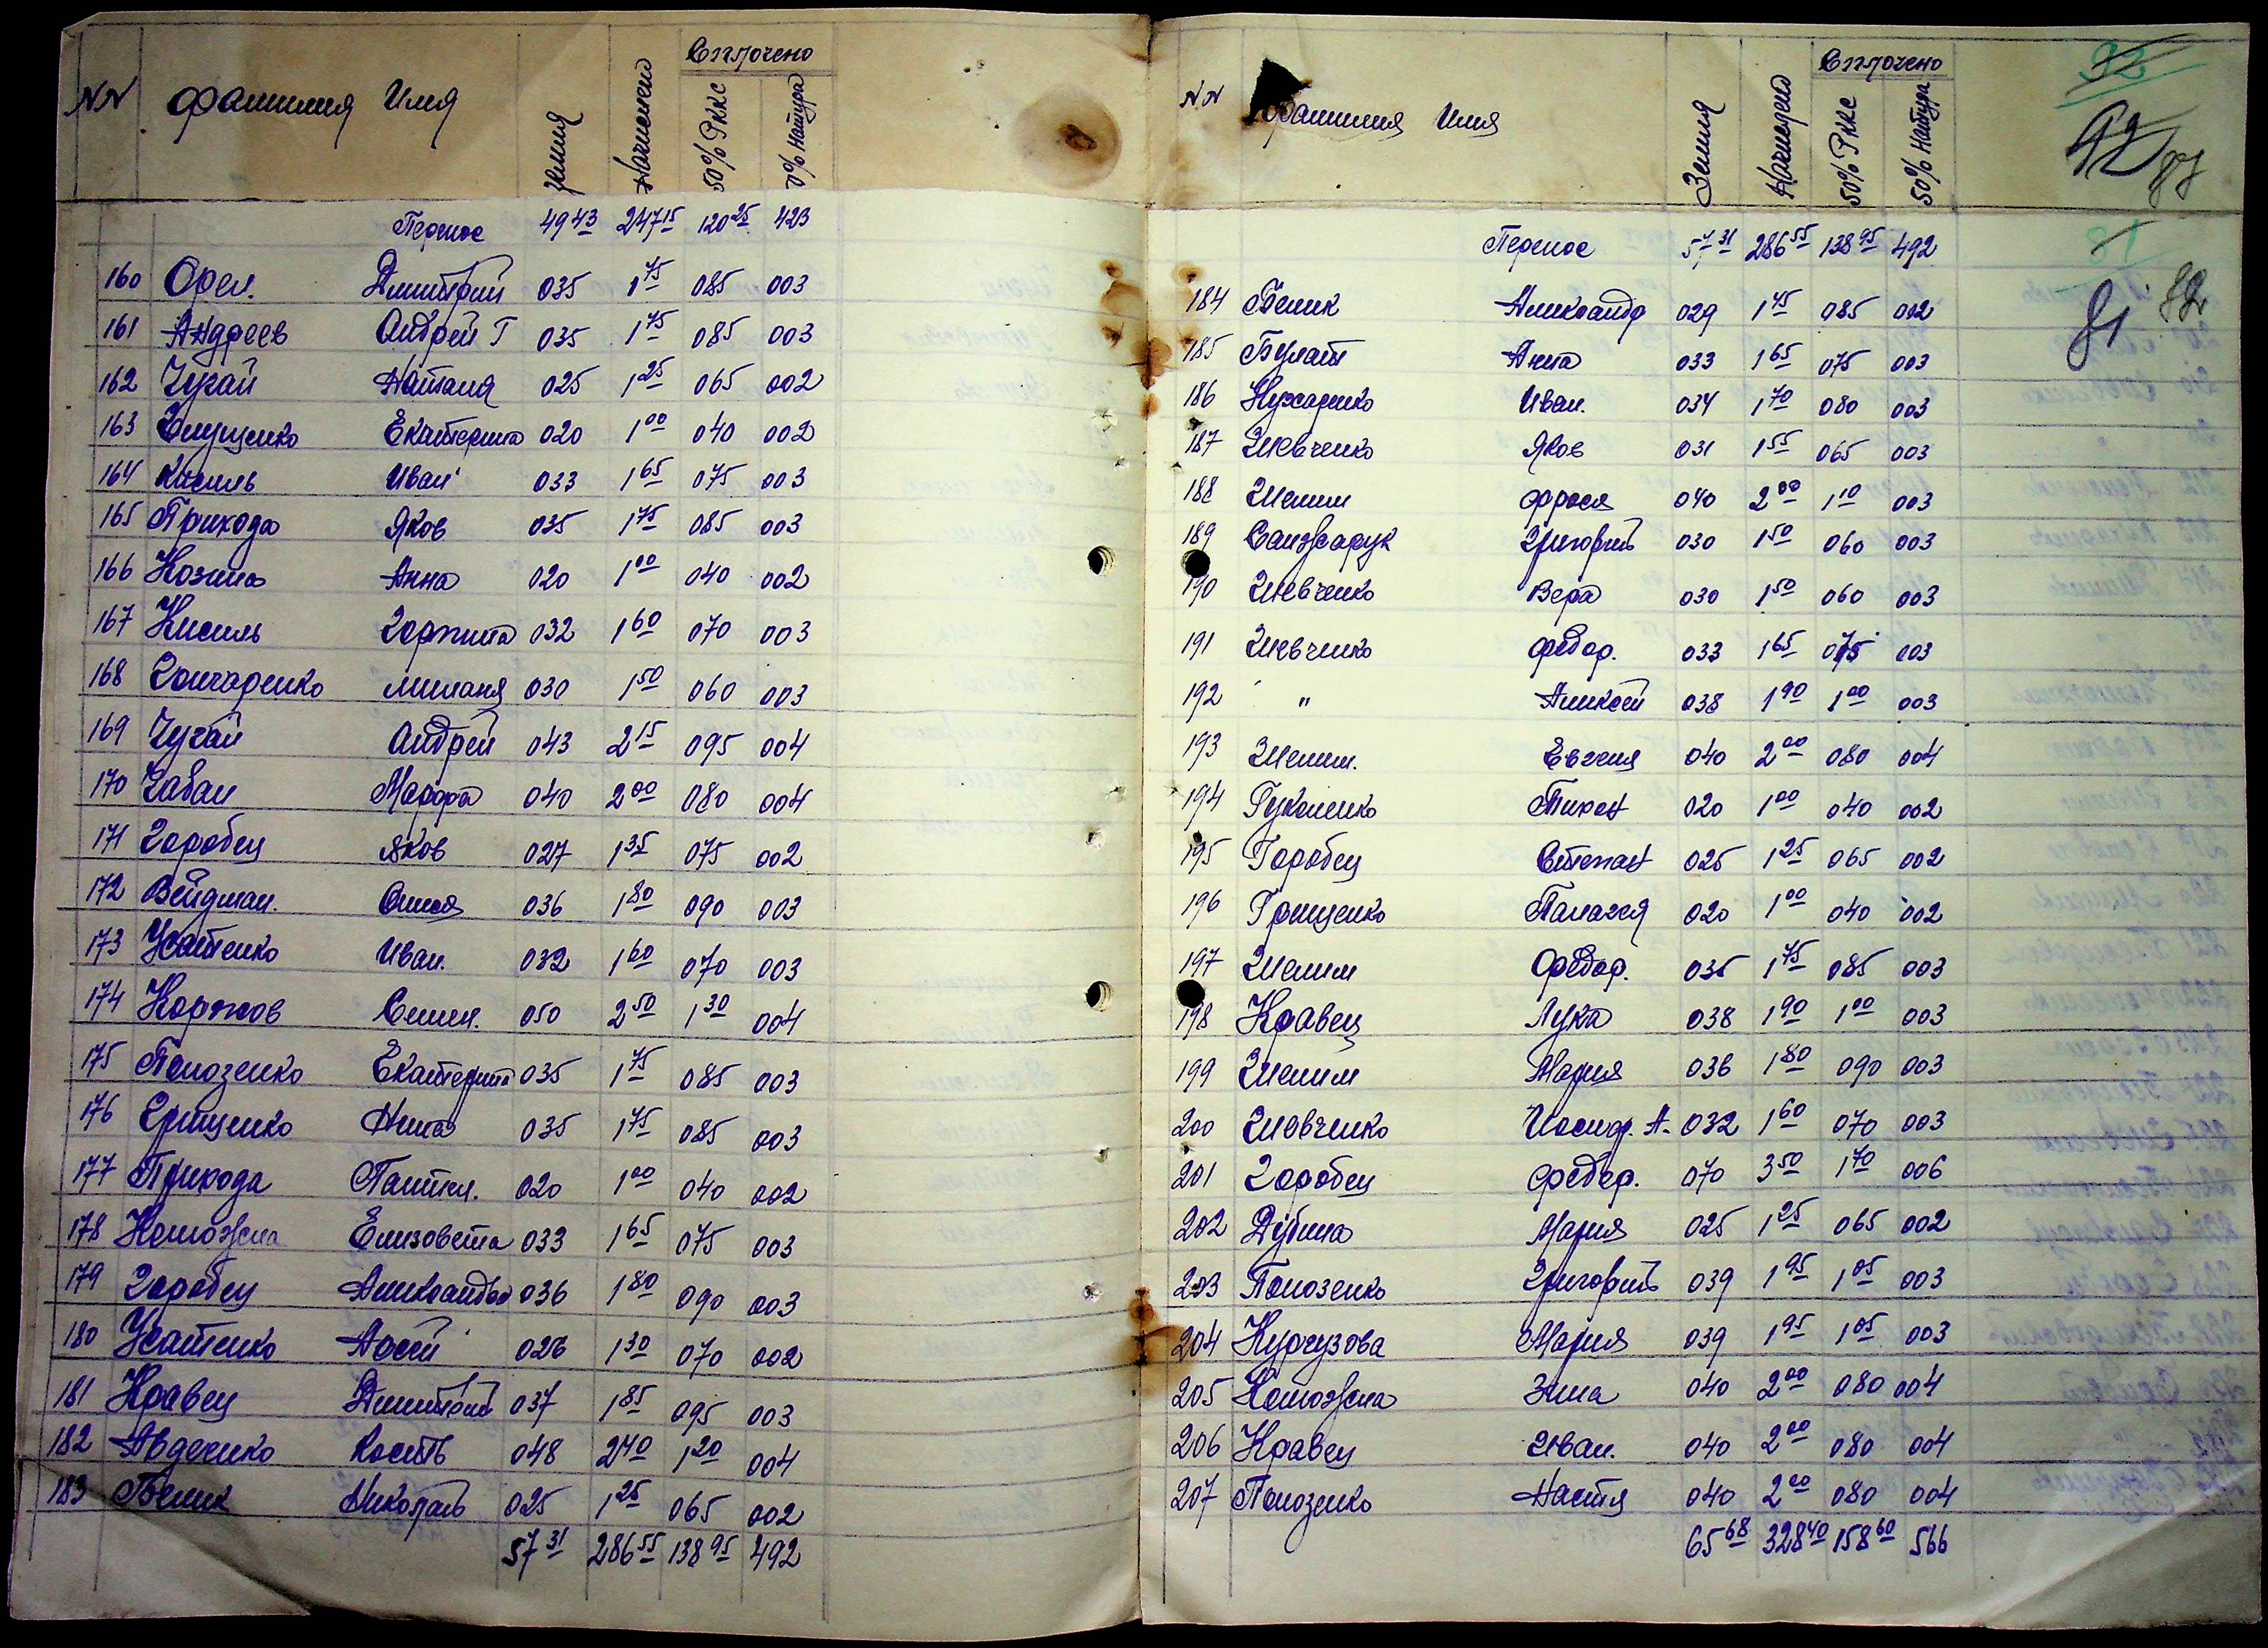 NN фамилия Имя Земля Начислено Сплочено 50% РККС 50% Натура
Перенос 49 43 247 15 120 25 423
160 Орел. Дмитрий 035 1 75 085 003
161 Андреев Андрей Г 035 1 75 085 003
162 Чугай Наталя 025 1 25 065 002
163 Екатерина 020 1 00 040 002
164 Кисиль Иван 033 1 65 075 003
165 Приходa Яков 035 1 75 085 003
166 Козина Анна 020 1 00 040 002
167 Кисиль Горпина 032 1 60 070 003
168 Гончаренко Миланя 030 1 50 060 003
169 Чугай Андрей 043 2 15 095 004
170 Чабан Марфа 040 2 00 080 004
171 Горобец Яков 027 1 35 075 002
172 Вейдман. 036 1 80 090 003
173 Усатенко Иван. 032 1 60 070 003
174 Коржов Семен. 050 2 50 1 30 004
175 Полозенко Екатерина 035 1 75 085 003
176 Грищенко Нина 035 1 75 085 003
177 Прихода Пантел. 020 1 00 040 002
178 Коможна Елизовета 033 1 65 075 003
179 Горобец Александра 036 1 80 090 003
180 Усатенко 026 1 30 070 002
181 Кравец Дмитрий 037 1 85 095 003
182 Авдеенко Кость 048 2 40 1 20 004
183 Белик Николай 025 1 25 065 002
57 31 286 55 138 95 492
NN фамилия Имя Земля Начислено Сплочено 50% РККС 50% Натура
92
42
87
Перенос 57 31 286 55 138 95 492
81
81 82
184 Белик Александр 029 1 45 085 002
185 Булат Анна 033 1 65 075 003
186 Кухаренко Иван. 034 1 70 080 003
187 Шевченко Яков 031 1 55 065 003
188 Шелим Фрося 040 2 00 1 10 003
189 Санжарук Григорий 030 1 50 060 003
190 Шевченко Вера 030 1 50 060 003
191 Шевченко Федор. 033 1 65 075 003
192 " Алексей 038 1 90 1 00 003
193 Шелим. Евгения 040 2 00 080 004
194 Гуколенко Тихон 020 1 00 040 002
195 Горобец Степан 025 1 25 065 002
196 Грищенко Палажея 020 1 00 040 002
197 Шелим Федор. 035 1 75 085 003
198 Кравец Лука 038 1 90 1 00 003
199 Шелим Мария 036 1 80 090 003
200 Шевченко Иосиф. А. 032 1 60 070 003
201 Горобец Федор. 070 3 50 1 70 006
202 Дубина Мария 025 1 25 065 002
203 Полозенко Григорий 039 1 95 1 05 003
204 Кургузова Мария 039 1 95 1 05 003
205 Коможна Зина 040 2 00 080 004
206 Кравец Иван. 040 2 00 080 004
207 Полозенко Настя 040 2 00 080 004
65 68 328 40 158 60 566